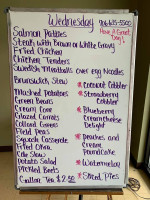 Wednesday
Have A Great Day!
Salmon Patties
Steak with Brown or White Gravy
Fried Chicken
Chicken Tenders
Swedish Meatballs over egg Noodles
Brunswick Stew
Mashed Potatoes
Green Beans
Cream Corn
Glazed Carrots
Collard Greens
Field Peas
Squash Casserole
Fried Okra
Cole Slaw
Potato Salad
Pickled Beets
Coconut Cobbler
Strawberry Cobbler
Blueberry Creamcheese Delight
Peaches and Cream
Watermelon